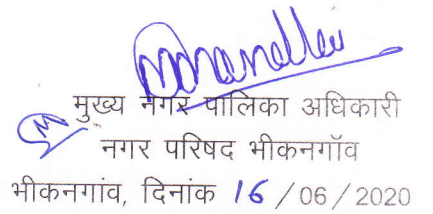 मुख्य नगर पालिका अधिकारी
नगर परिषद भीकनगॉव
भीकनगांव, दिनांक 16 / 06 / 2020